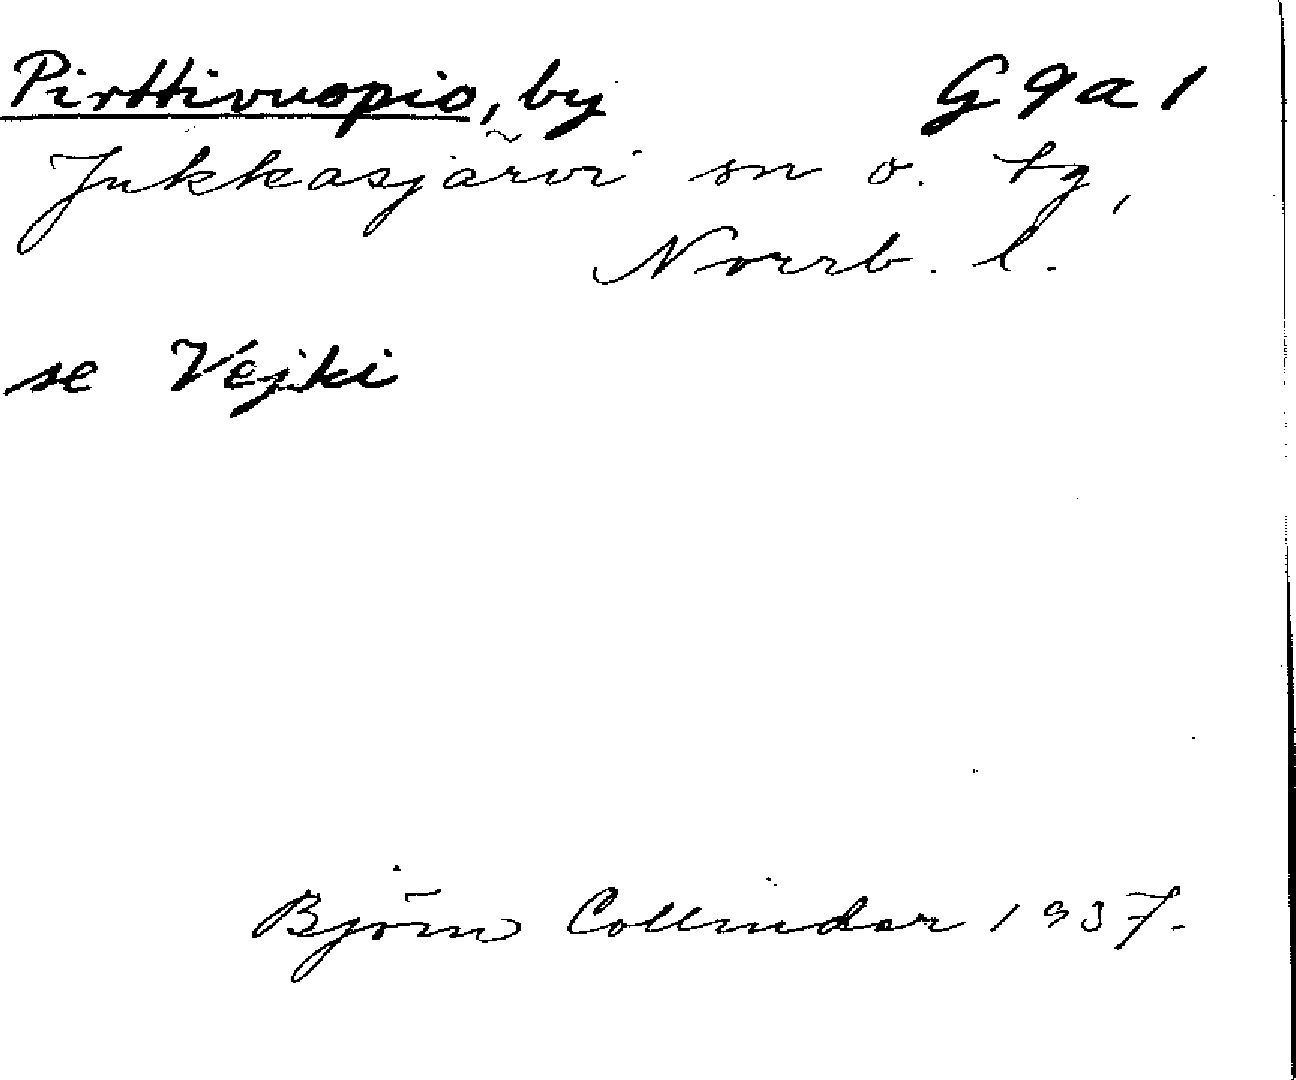 Pirttivuopio, by G 9 a 1
Jukkasjärvi sn o. tg,
Norrb. l.
se Vejki
Björn Collinder 1937.